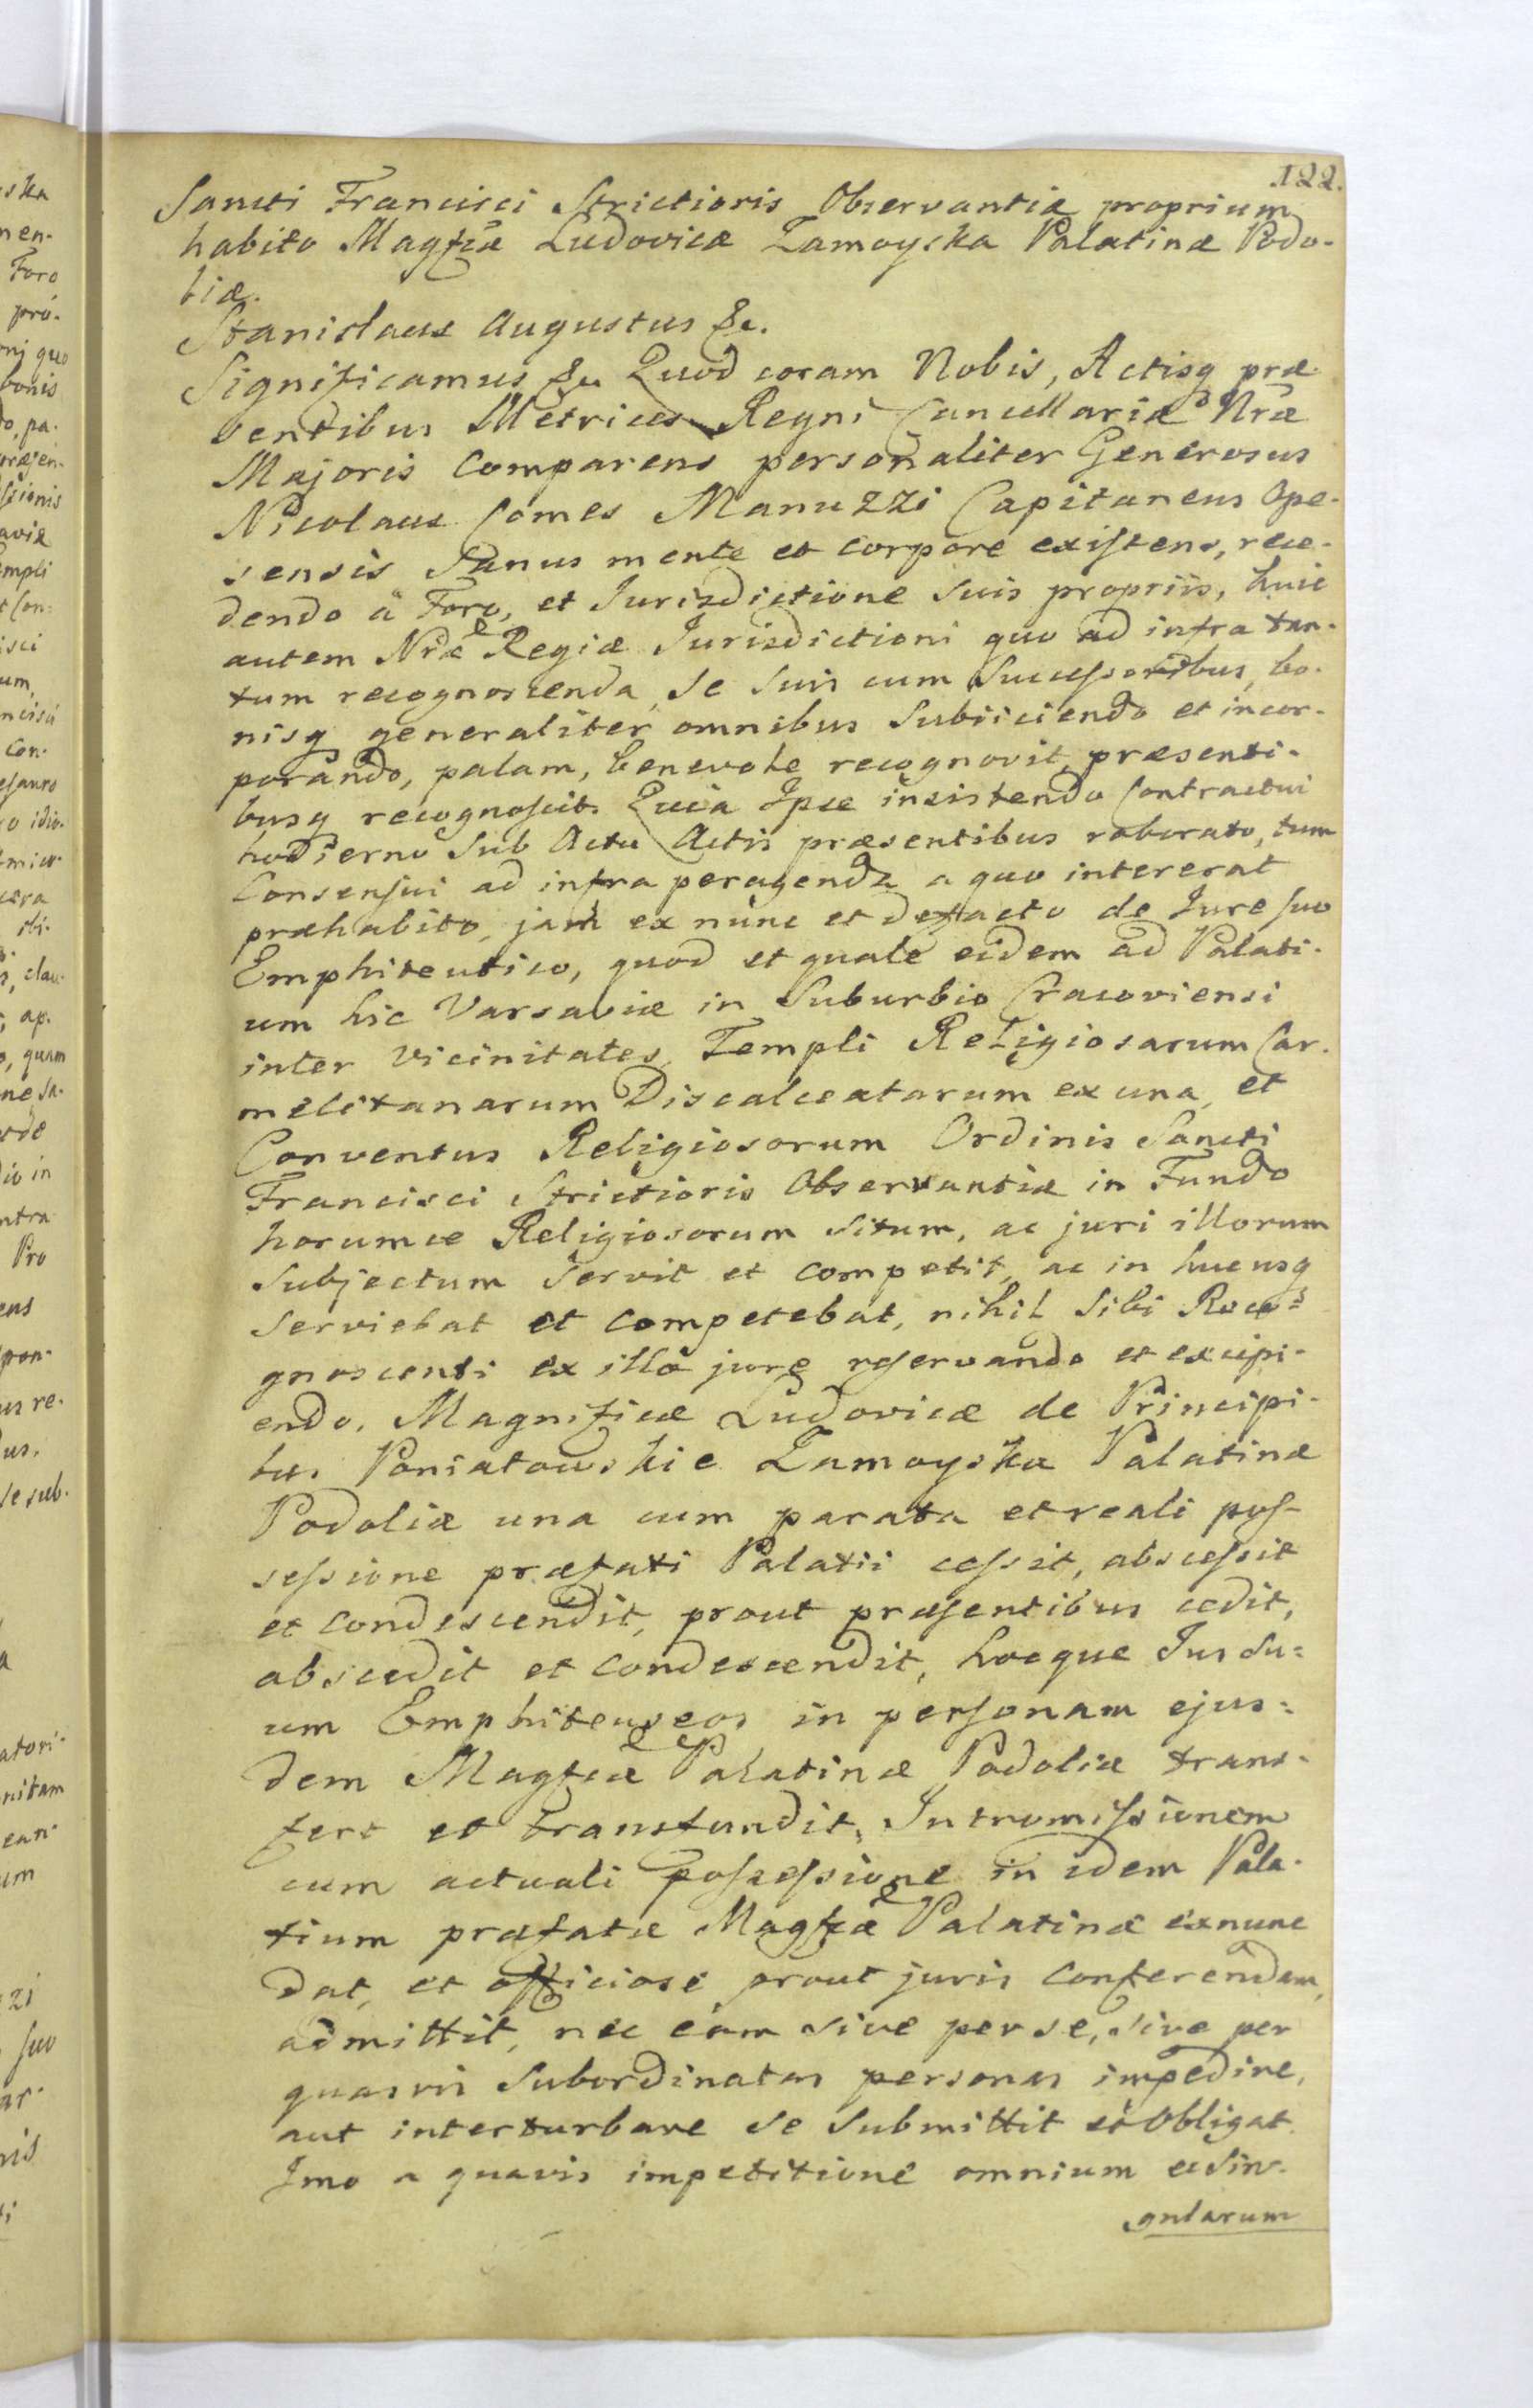 122.
Sancti Francisci Strictioris Observantiæ proprium
habito Magfcæ Ludovicæ Zamoyska Palatinæ Podo-
liæ.
Stanislaus Augustus &c.
Significamus &c Quod coram Nobis, Actisq præ-
sentibus Metrices Regni Cancellariæ Nræ
Majoris Comparens personaliter Generosus
Nicolaus Comes Manuzzi Capitaneus Ope-
sensis Sanus mente et corpore existens, rece-
dendo à Foro, et Jurisdictione suis propriis, huic
autem Nræ Regiæ Jurisdictioni quo ad infra tan-
tum recognoscenda, se suis cum Successoribus, bo-
nisq generaliter omnibus Subiiciendo et incor-
porando, palam, benevole recognovit, præsenti-
busq recognoscit. Quia Ipse insistendo Contractui
hodierno Sub Actu Actis præsentibus roborato, tum
Consensui ad infra peragenda a quo intererat
præhabito, jam ex nunc et de facto de Jure suo
Emphiteutico, quod et quale eidem ad Palati-
um hic Varsaviæ in Suburbio Cracoviensi
inter Vicinitates, Templi Religiosarum Car-
melitanarum Discalceatarum ex una, et
Conventus Religiosorum Ordinis Sancti
Francisci Strictioris Observantiæ in Fundo
horumce Religiosorum situm, ac juri illorum
Subjectum Servit et competit, ac in hucusq
Serviebat et competebat, nihil Sibi Reco=
gnoscenti ex illo jure reservando et excipi-
endo, Magnificæ Ludovicæ de Principi-
bus Poniatowskie Zamoyska Palatinæ
Podoliæ una cum parata et reali pos-
sessione præfati Palatii cessit, abscessit
et condescendit, prout præsentibus cedit,
abscedit et condescendit, hocque Jus su=
um Emphiteuseos in personam ejus=
dem Magfcæ Palatinæ Podoliæ trans-
fert et transfundit, Intromissionem
cum actuali possessione in idem Pala-
tium præfatæ Magfcæ Palatinæ exnunc
dat, et officiose prout juris conferendam,
admittit, nec eam sive per se, sive per
quasvis Subordinatas personas impedire,
aut interturbare se submittit et Obligat.
Imo a quavis impetitione omnium et sin-
gularum